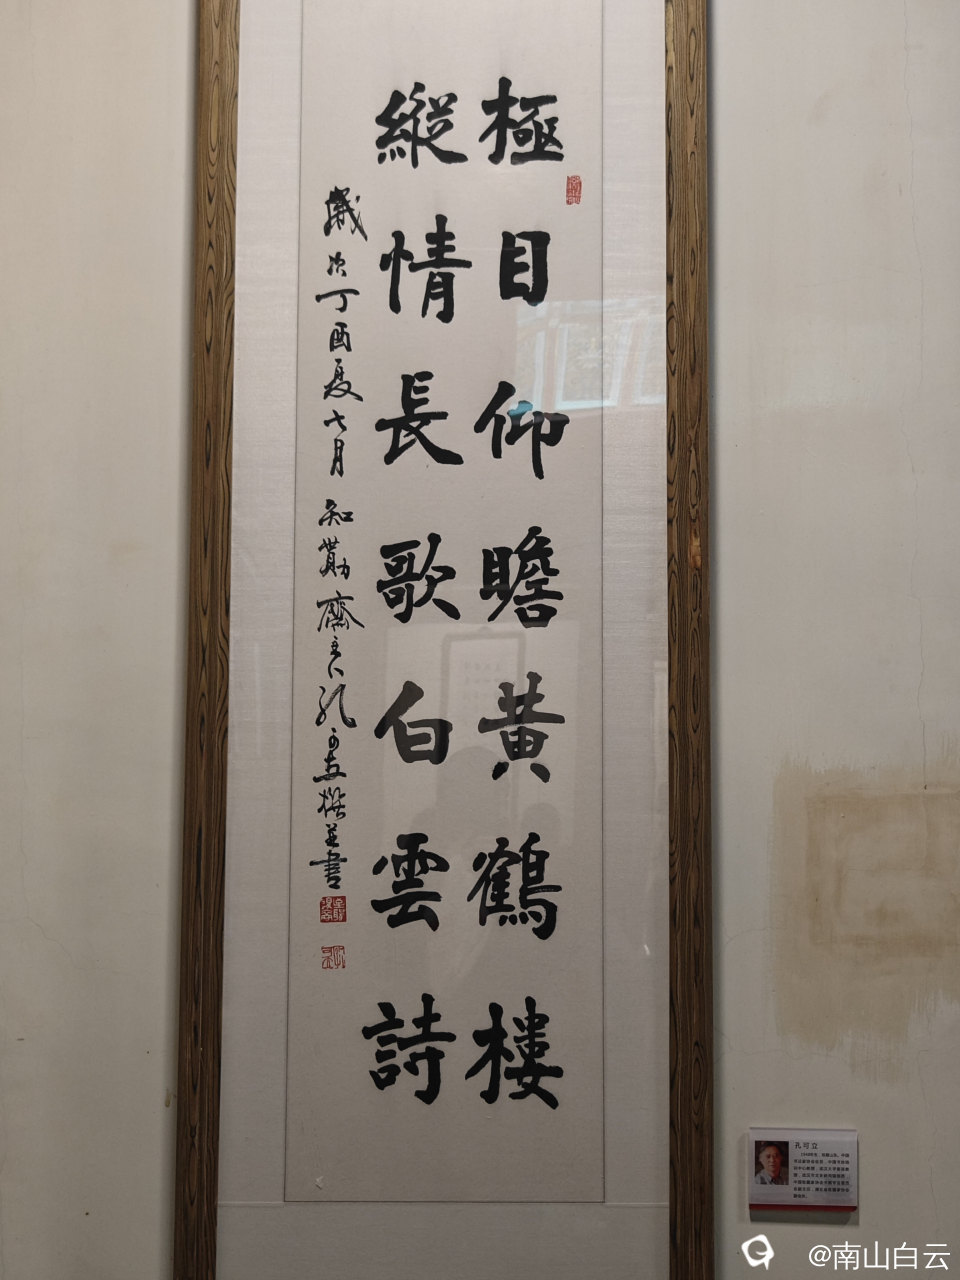 極目仰瞻黄鶴樓
縱情長歌白雲詩
歲次丁酉夏七月知勤齋主人孔可立撰並書
孔可立
@南山白云